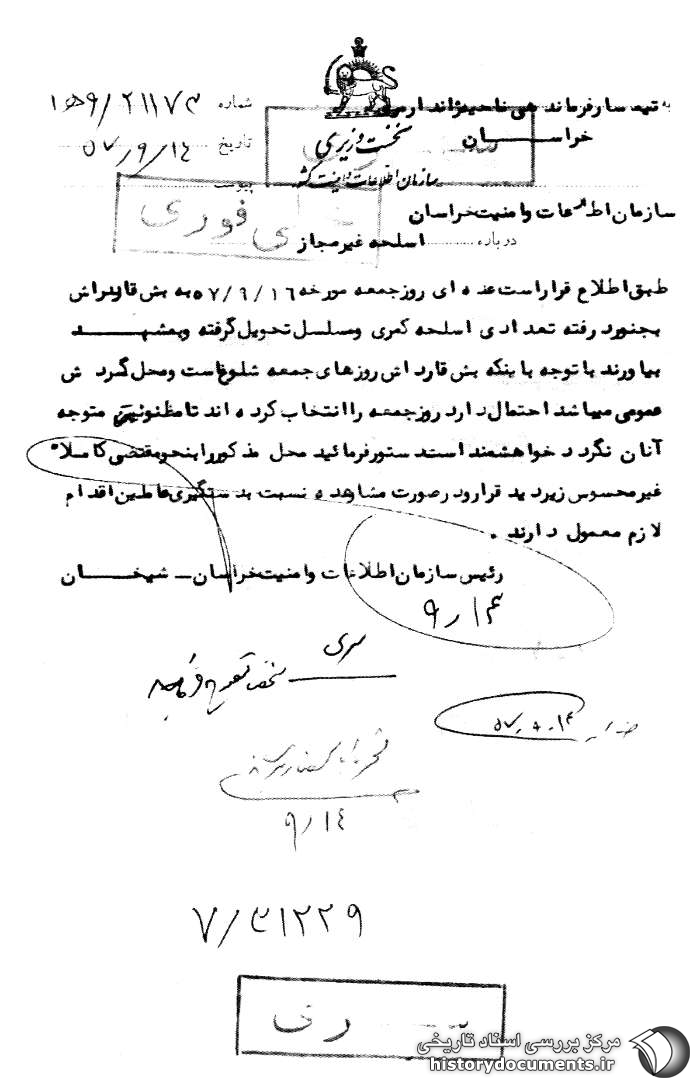 به تیمسار فرماندهی ناحیه ژاندارمری
خراســــان
شماره ۲۱۱۷۳/ ۱ه۹
تاریخ ۵۷/۹/۱۴
پیوست
نخست وزیری
سازمان اطلاعات و امنیت کشور
سری
خیلی فوری
سازمان اطلاعات و امنیت خراسان
درباره اسلحه غیرمجاز
طبق اطلاع قرار است عده ای روز جمعه مورخه ۵۷/۹/۱۶ به بش قارداش
بجنورد رفته تعدادی اسلحه کمری و مسلسل تحویل گرفته و بمشهـــد
بیاورند با توجه باینکه بش قارداش روزهای جمعه شلوغ است و محل گردش
عمومی میباشد احتمال دارد روز جمعه را انتخاب کرده اند تا مظنونین متوجه
آنان نگردد خواهشمند است دستور فرمائید محل مذکور را بنحو مقتضی کاملا"
غیر محسوس زیر دید قرار و در صورت مشاهده نسبت بدستگیری عاملین اقدام
لازم معمول دارند .
رئیس سازمان اطلاعات و امنیت خراسان ـ شیخـــان
۹/۱۴
سری
۵۷/۹/۱۴
۹/۱۴
۷/۳۱۲۲۹
سری
مرکز بررسی اسناد تاریخی
historydocuments.ir